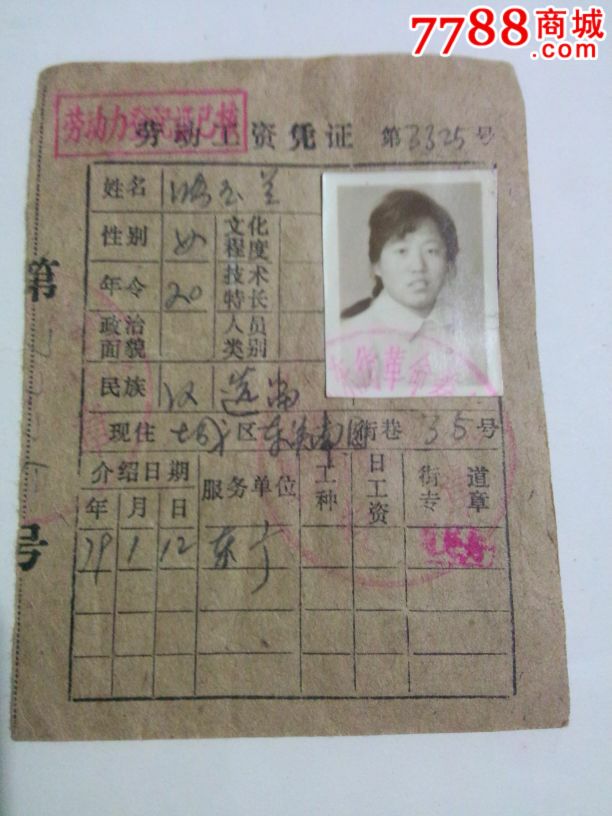 7788商城
.com
劳动力登记证已核
劳动工资凭证 第3325号
姓名 玉兰
性别 女 文化程度
年令 20 技术特长
政治面貌 人员类别
民族 汉
现住 城区 街巷 35号
介绍日期 服务单位 工种 日工资 街道专章
年 月 日
79 1 12 东宁
第
号